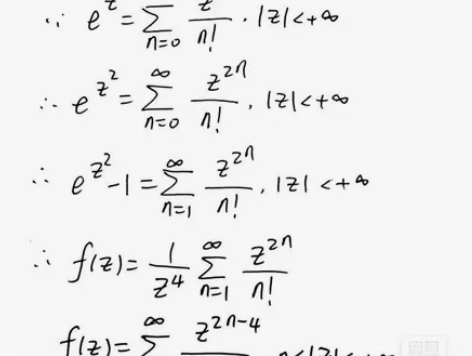 ∵ e^z = ∑_{n=0} z / n! , |z| < +∞
∴ e^{z^2} = ∑_{n=0}^{∞} z^{2n} / n! , |z| < +∞
∴ e^{z^2} - 1 = ∑_{n=1}^{∞} z^{2n} / n! , |z| < +∞
∴ f(z) = 1 / z^4 ∑_{n=1}^{∞} z^{2n} / n!
f(z) = ∑^{∞} z^{2n-4}